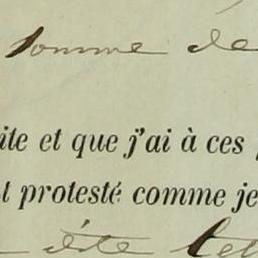 somme de
ite et que j'ai à ces
t protesté comme je
dite